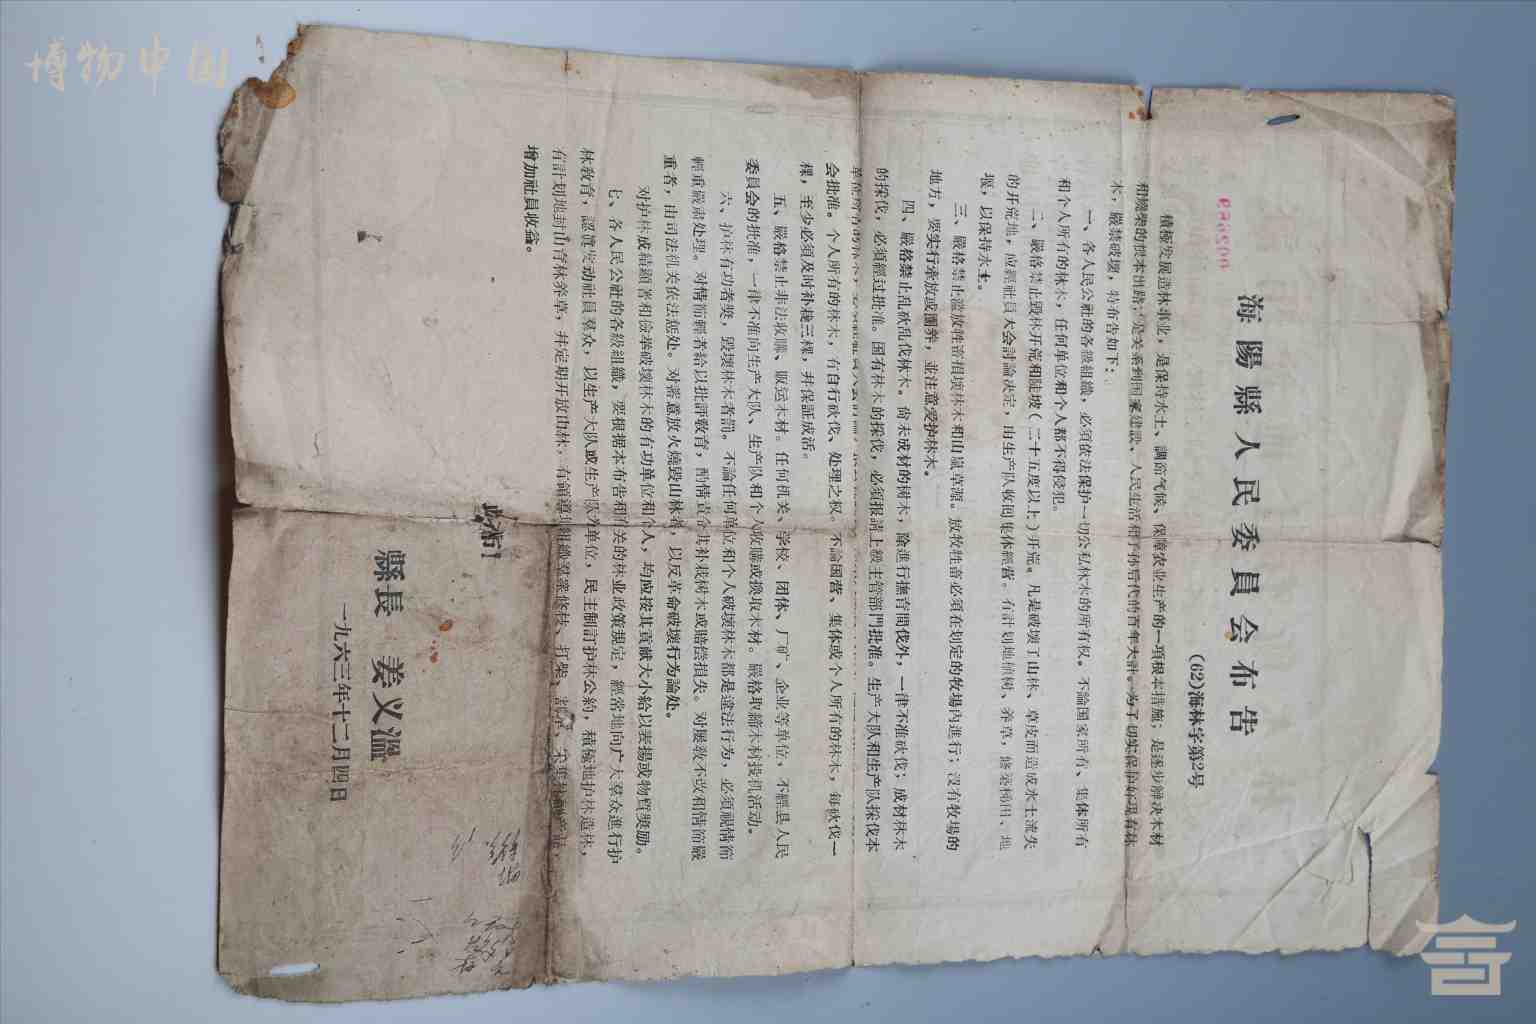 博物中国
002699
海陽縣人民委員会布告
(62)海林字第2号
積極发展造林事业，是保持水土、調節气候、保障农业生产的一項根本措施；是逐步解决木材
和燒柴的根本出路；是关系到国家建設、人民生活和子孙后代的百年大計。为了切实保护好現有林
木，嚴禁破壞，特布告如下：
一、各人民公社的各級組織，必須依法保护一切公私林木的所有权。不論國家所有、集体所有
和个人所有的林木，任何单位和个人都不得侵犯。
二、嚴格禁止毀林开荒和陡坡(二十五度以上)开荒。凡是破壞了山林、草皮而造成水土流失
的开荒地，应經社員大会討論决定，由生产队收回集体經营。有計划地植树、养草，修築梯田、地
堰，以保持水土。
三、嚴格禁止濫放牲畜損壞林木和山嵐草源。放牧牲畜必須在划定的牧場內進行；沒有牧場的
地方，要实行牽放或圈养，並注意爱护林木。
四、嚴格禁止乱砍乱伐林木。尙未成材的樹木，除進行撫育間伐外，一律不准砍伐；成材林木
的採伐，必須經过批准。国有林木的採伐，必須报請上級主管部門批准。生产大队和生产队採伐本
单位所有的林木，
会批准。个人所有的林木，有自行砍伐、处理之权。不論国营、集体或个人所有的林木，每砍伐一
棵，至少必須及时补栽三棵，并保証成活。
五、嚴格禁止非法收購、販运木材。任何机关、学校、团体、厂矿、企业等单位，不經县人民
委員会的批准，一律不准向生产大队、生产队和个人收購或換取木材。嚴格取締木材投机活动。
六、护林有功者奬，毀壞林木者罰。不論任何单位和个人破壞林木都是違法行为，必須視情節
輕重嚴肅处理。对情節輕者給以批評敎育，酌情責令其补栽树木或賠偿損失。对屡敎不改和情節嚴
重者，由司法机关依法惩处。对蓄意放火燒毀山林者，以反革命破壞行为論处。
对护林成績顯著和檢举破壞林木的有功单位和个人，均应按其貢献大小給以表揚或物質奬励。
七、各人民公社的各級組織，要根据本布告和有关的林业政策規定，經常地向广大羣众進行护
林敎育，認眞发动社員羣众，以生产大队或生产队为单位，民主制訂护林公約，積極地护林造林，
有計划地封山育林养草，并定期开放山林，有領導地組織羣衆修枝、打柴、割草、
增加社員收益。
此布！
縣長 姜义溫
一九六三年十二月四日